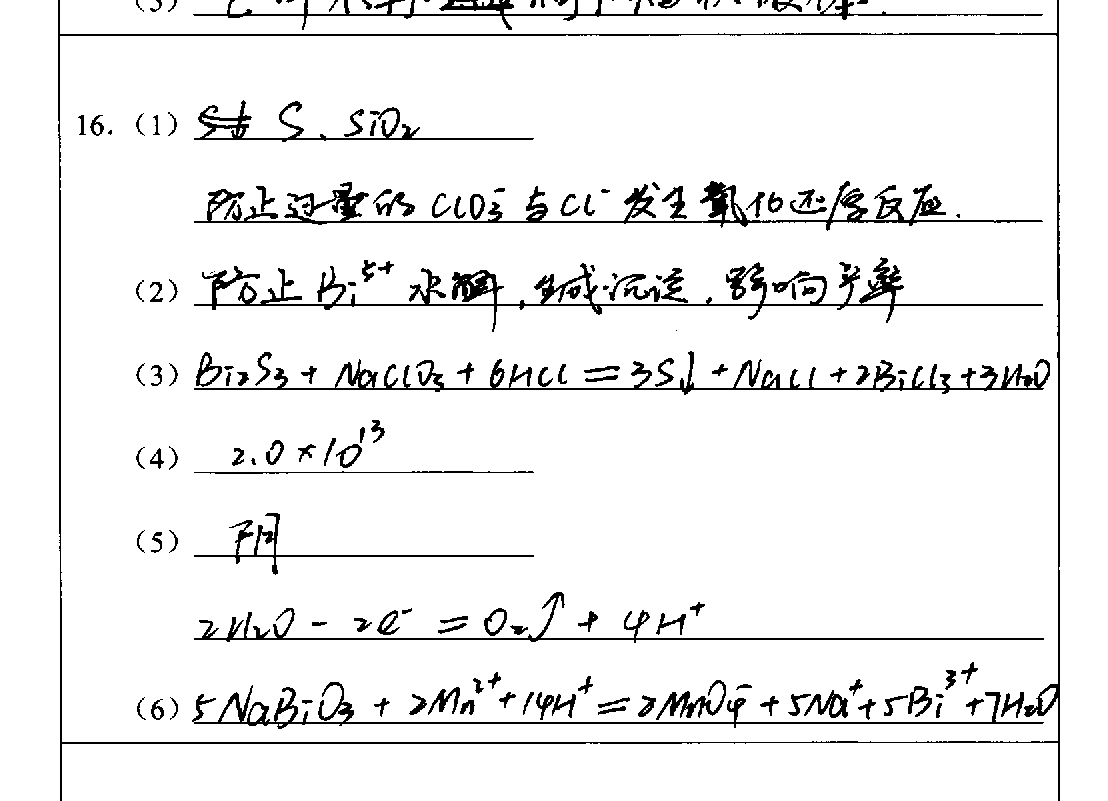 (3)
16. (1) S、SiO₂
防止过量的 ClO₃⁻ 与 Cl⁻ 发生氧化还原反应.
(2) 防止 Bi⁵⁺ 水解，生成沉淀，影响产率
(3) Bi₂S₃ + NaClO₃ + 6HCl = 3S↓ + NaCl + 2BiCl₃ + 3H₂O
(4) 2.0×10¹³
(5) 阴
2H₂O - 2e⁻ = O₂↑ + 4H⁺
(6) 5NaBiO₃ + 2Mn²⁺ + 14H⁺ = 2MnO₄⁻ + 5Na⁺ + 5Bi³⁺ + 7H₂O